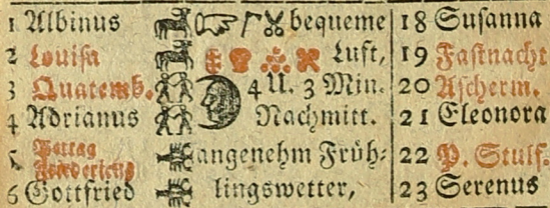 1 Albinus bequeme 18 Susanna
2 Louisa Luft, 19 Fastnacht
3 Quatemb. 4 U. 3 Min. 20 Ascherm.
4 Adrianus Nachmitt. 21 Eleonora
5 Bußtag
Fridericus angenehm Früh- 22 P. Stulf.
6 Gottfried lingswetter, 23 Serenus